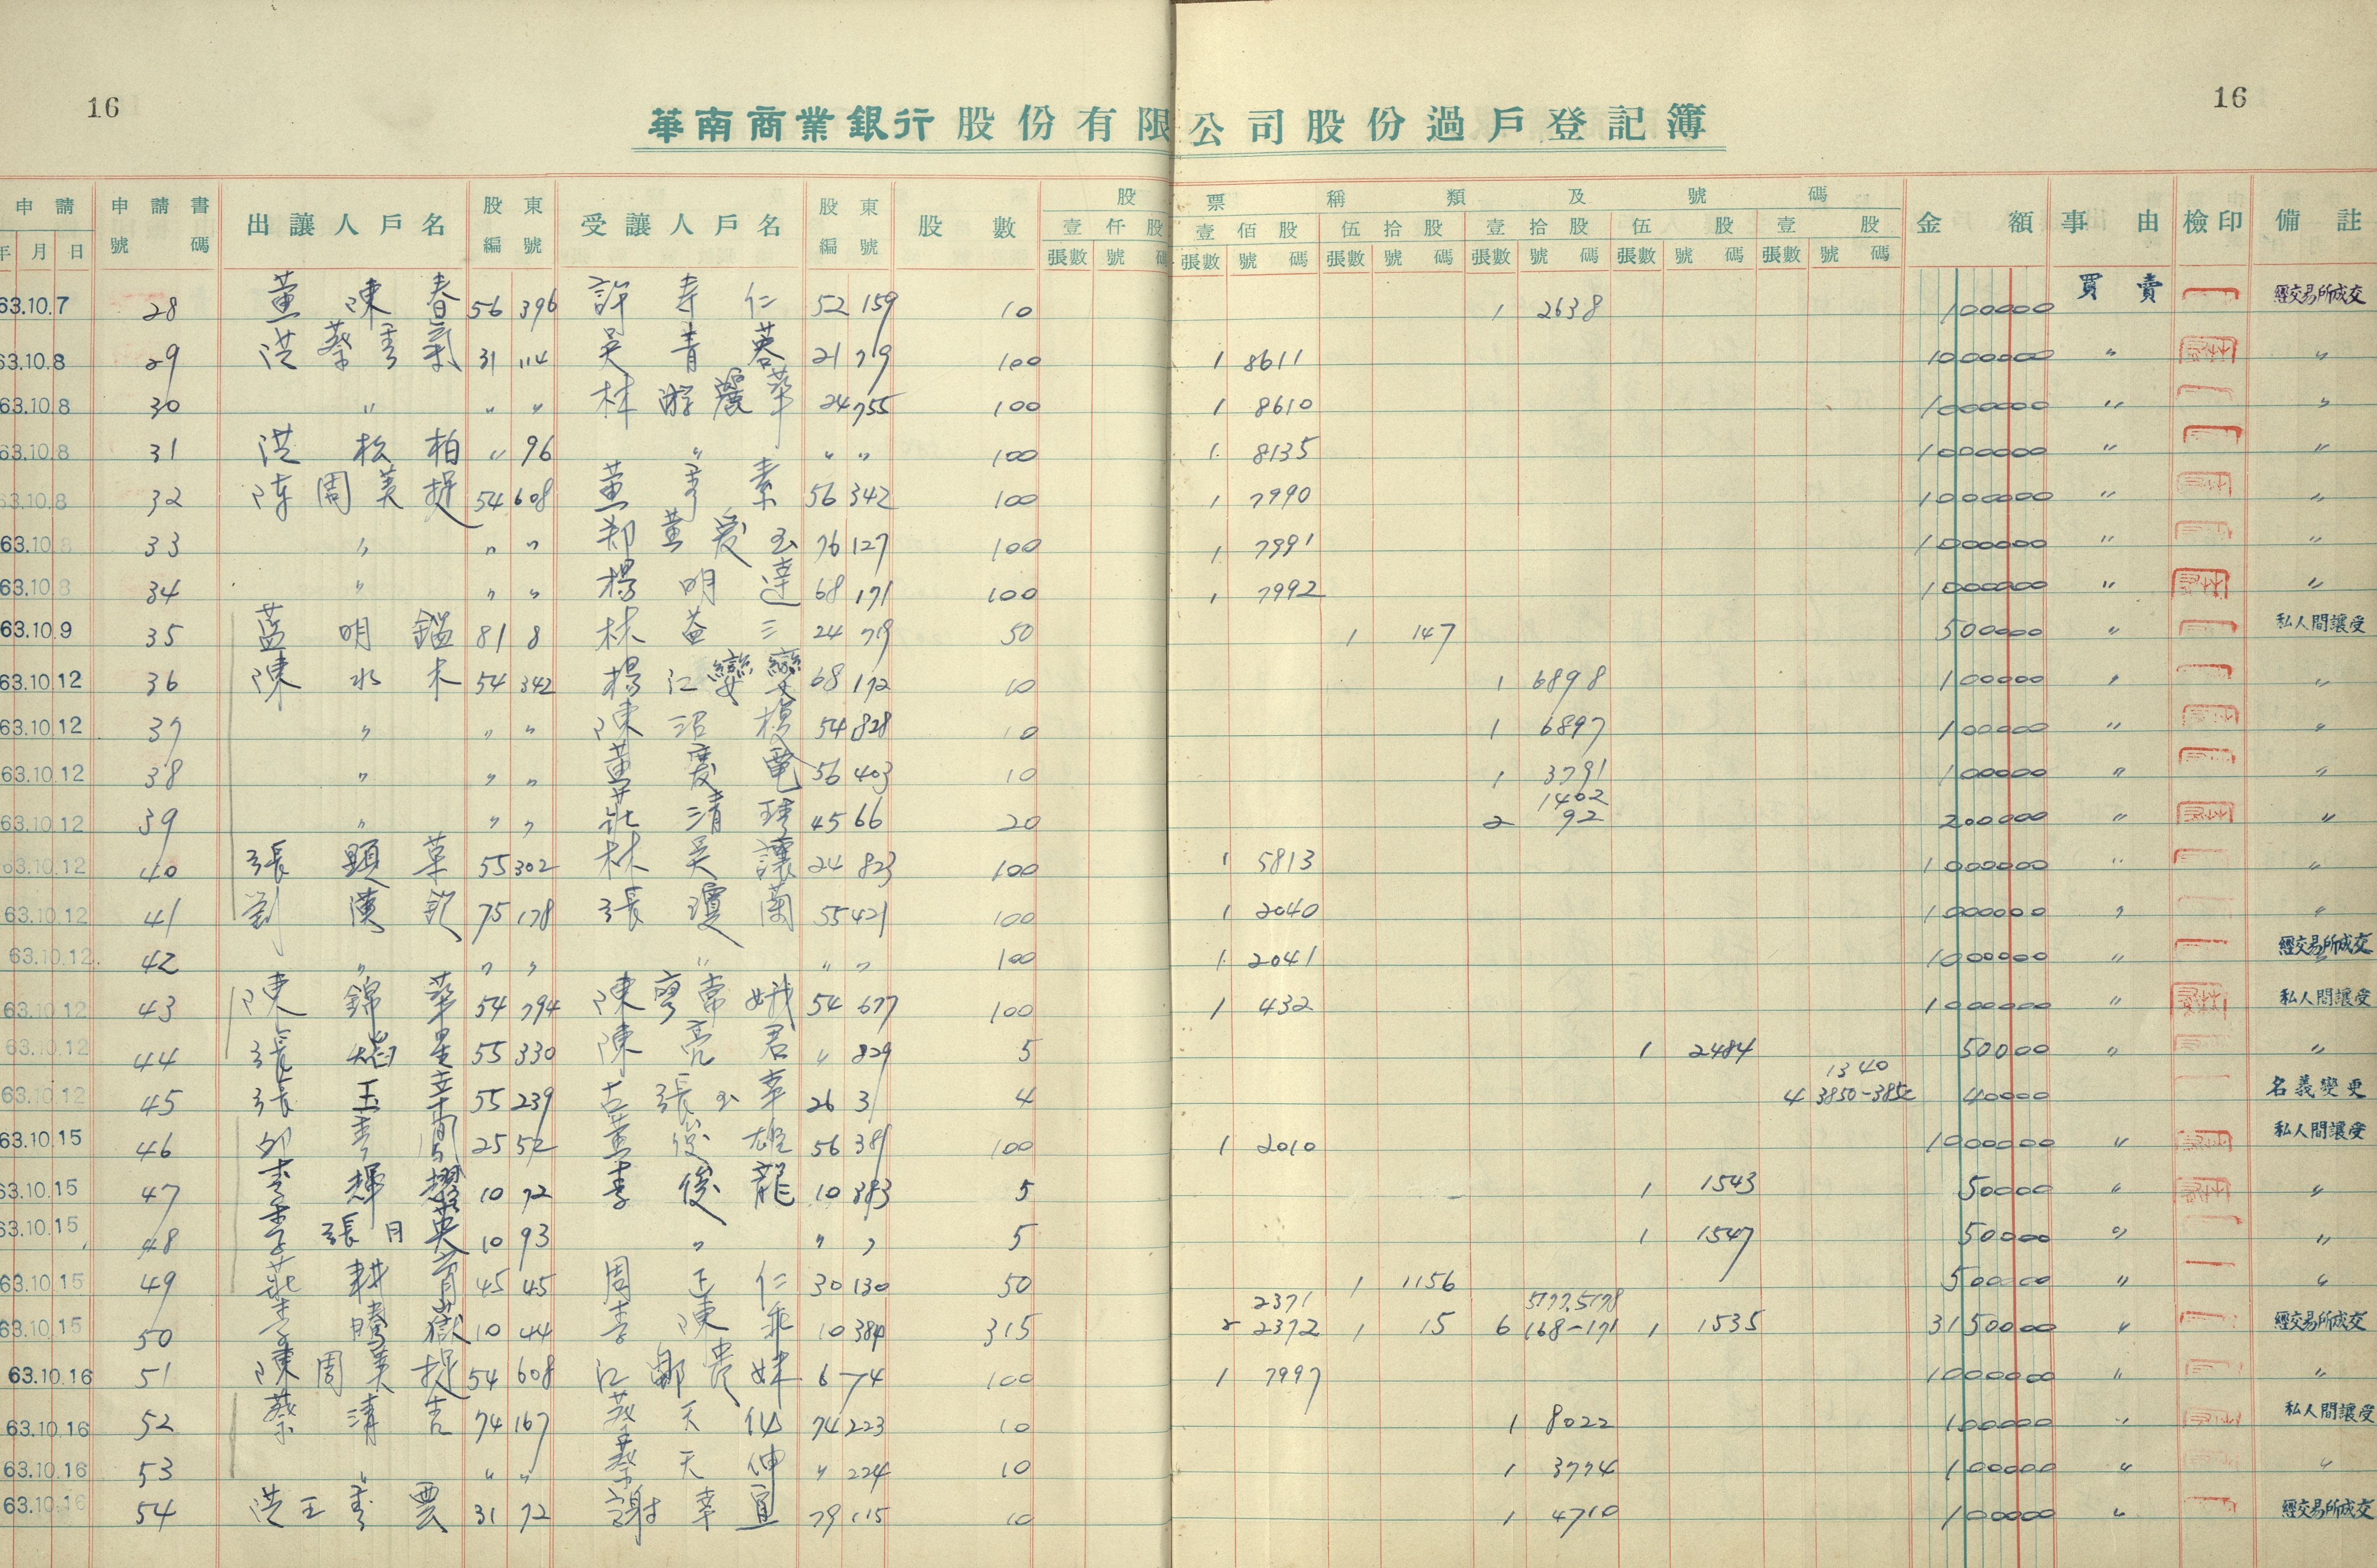 16
16
華南商業銀行股份有限公司股份過戶登記簿
申請 年 月 日 申請書號碼 出讓人戶名 股東編號 受讓人戶名 股東編號 股數 股票稱類及號碼 金額 事由 檢印 備註
壹仟股 壹佰股 伍拾股 壹拾股 伍股 壹股
張數 號碼 張數 號碼 張數 號碼 張數 號碼 張數 號碼 張數 號碼
63.10.7 28 黃陳春 56 396 許寿仁 52 159 10 1 2638 100000 買賣 經交易所成交
63.10.8 29 洪蔡秀氣 31 114 吳青蓉 21 719 100 1 8611 1000000 〃 〃
63.10.8 30 〃 〃 〃 林游麗華 24 755 100 1 8610 1000000 〃 〃
63.10.8 31 洪松柏 〃 96 〃 〃 〃 100 1 8135 1000000 〃 〃
63.10.8 32 陳周美捉 54 608 黃秀素 56 342 100 1 7990 1000000 〃 〃
63.10.8 33 〃 〃 〃 黃愛玉 76 127 100 1 7991 1000000 〃 〃
63.10.8 34 〃 〃 〃 楊明達 68 171 100 1 7992 1000000 〃 〃
63.10.9 35 藍明鎰 81 8 林益三 24 719 50 1 147 500000 〃 私人間讓受
63.10.12 36 陳水木 54 342 楊江變 68 172 10 1 6898 100000 〃 〃
63.10.12 37 〃 〃 〃 陳沼模 54 828 10 1 6897 100000 〃 〃
63.10.12 38 〃 〃 〃 黃慶電 56 403 10 1 3791 100000 〃 〃
1402
63.10.12 39 〃 〃 〃 莊清 45 66 20 2 92 200000 〃 〃
63.10.12 40 張顕革 55 302 林吳讓 24 823 100 1 5813 1000000 〃 〃
63.10.12 41 劉陳 75 178 張瓊蘭 55 421 100 1 2040 1000000 〃 〃
63.10.12 42 〃 〃 〃 〃 〃 〃 100 1 2041 1000000 〃 經交易所成交
63.10.12 43 陳錦華 54 794 陳廖常娥 54 677 100 1 432 1000000 〃 私人間讓受
63.10.12 44 張星 55 330 陳亮君 〃 829 5 1 2484 50000 〃 〃
1340
63.10.12 45 張玉幸 55 239 古張玉幸 26 31 4 4 3850-385 40000 名義變更
63.10.15 46 邱秀蘭 25 52 黃俊雄 56 381 100 1 2010 1000000 〃 私人間讓受
63.10.15 47 李輝櫻 10 72 李俊龍 10 383 5 1 1543 50000 〃 〃
63.10.15 48 李張月英 10 93 〃 〃 〃 5 1 1547 50000 〃 〃
63.10.15 49 莊耕 45 45 周正仁 30 130 50 1 1156 500000 〃 〃
2371 5177.5178
63.10.15 50 李騰嶽 10 44 李陳乖 10 384 315 2 2372 1 15 6 168-171 1 1535 3150000 〃 經交易所成交
63.10.16 51 陳周美捉 54 608 江鄭貴妹 6 74 100 1 7997 1000000 〃 〃
63.10.16 52 蔡清吉 74 167 蔡天仙 74 223 10 1 8022 100000 〃 私人間讓受
63.10.16 53 〃 〃 〃 蔡天伸 〃 224 10 1 3774 100000 〃 〃
63.10.16 54 洪王秀雲 31 72 謝幸宜 79 115 10 1 4710 100000 〃 經交易所成交